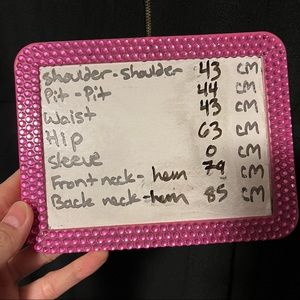 shoulder-shoulder 43 CM
Pit-Pit 44 CM
Waist 43 CM
Hip 63 CM
Sleeve 0 CM
Front neck-hem 79 CM
Back neck-hem 85 CM